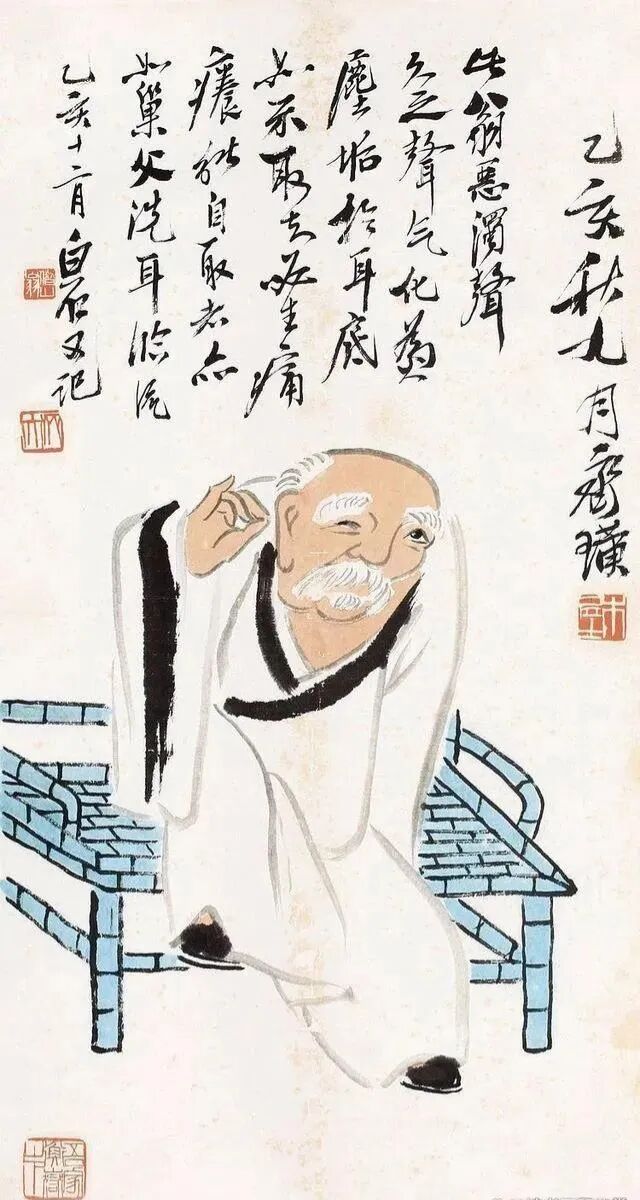 乙亥秋九月齊璜
木居士
此翁惡濁聲
久之聲气化爲
塵垢於耳底
如不取去必生痛
癢能自取者亦
如巢父洗耳臨流
乙亥十二月白石又記